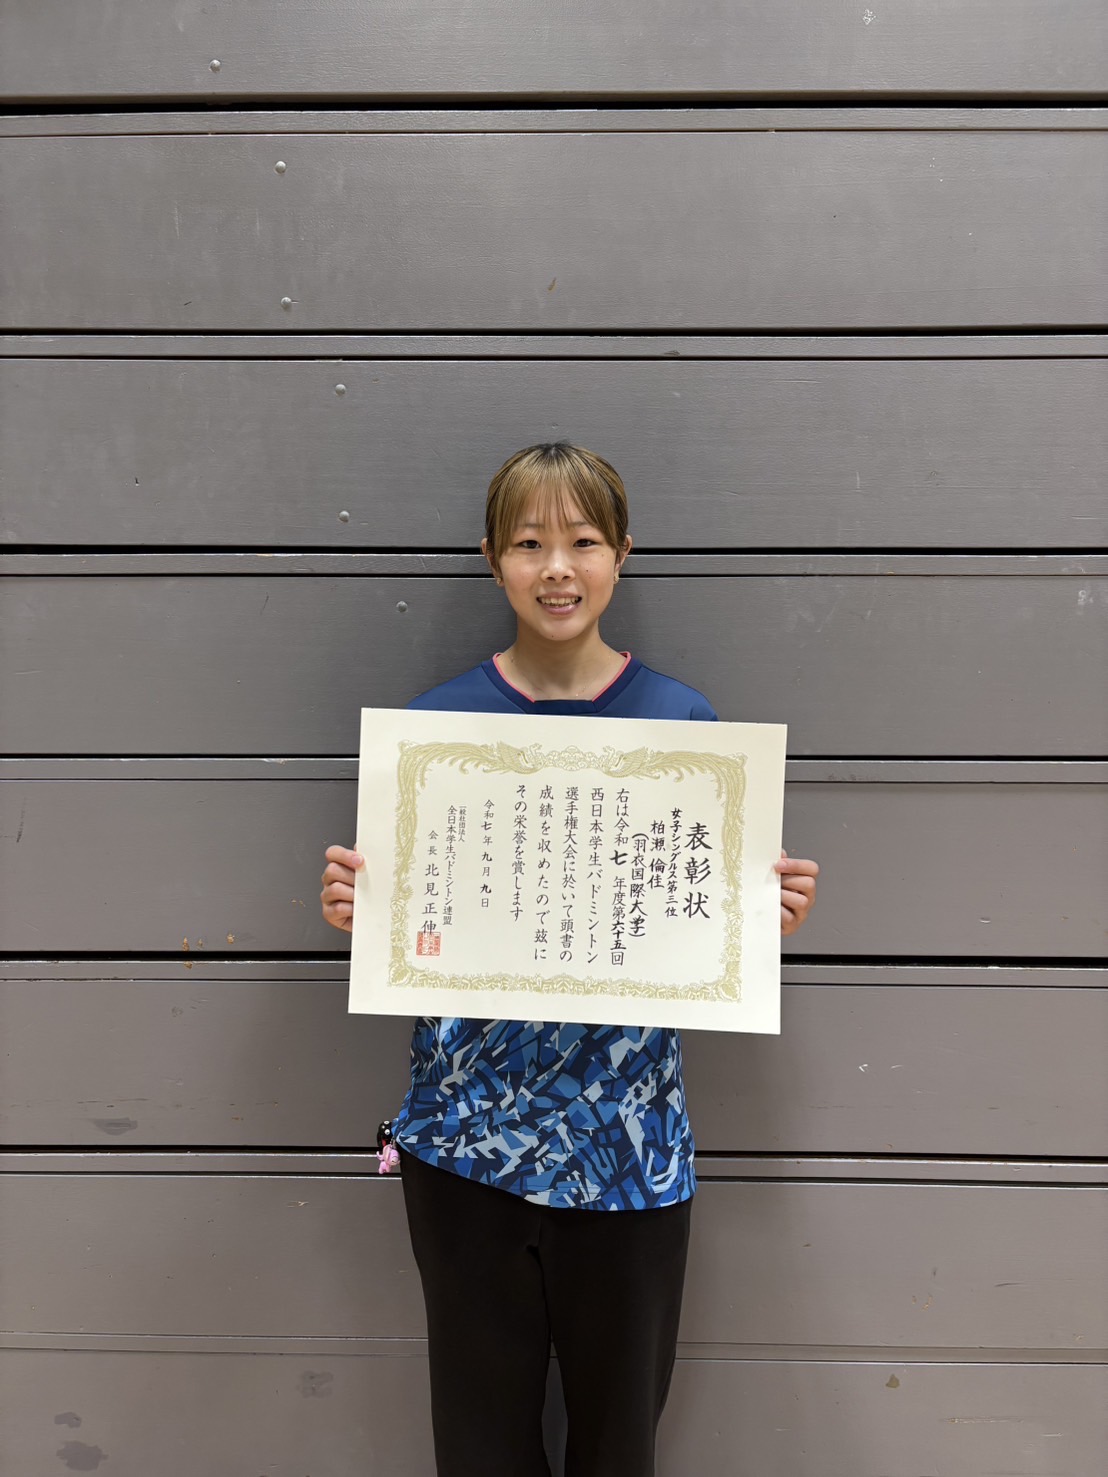 表彰状
女子シングルス第三位
柏瀬 倫佳
(羽衣国際大学)
右は令和七年度第六十五回
西日本学生バドミントン
選手権大会に於いて頭書の
成績を収めたので玆に
その栄誉を賞します
令和七年九月九日
一般社団法人
全日本学生バドミントン連盟
会長 北見正伸